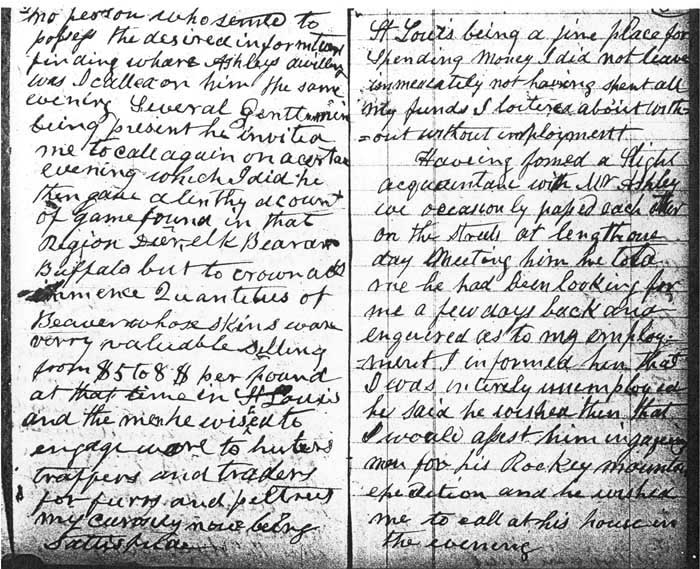 no person who semed to
posses the desired information
finding whare Ashleys dwelling
was I called on him the same
evening Several Gentlemen
being present he invited
me to call again on a certain
evening which I did he
then gave a lenthy account
of game found in that
Region Deer elk Bear and
Buffalo but to crown all
immence Quantities of
Beaver whose skins ware
verry valuable selling
from $5 to 8 $ per pound
at that time in St Louis
and the men he wished to
engage ware to hunters
trappers and traders
for furrs and peltrees
my curosity now being
Sattisfide
St Louis being a fine place for
Spending Money I did not leave
immediately not having spent all
my funds I loitered about with-
=out without imployment
Haveing fomed a Slight
acquaintance with Mr Ashley
we occasionly passed each other
on the streets at length one
day Meeting him he told
me he had been looking for
me a few days back and
enquired as to my employ-
=ment I informed him that
I was intirely unemployed
he said he wished then that
I would assist him ingageing
men for his Rockey mountain
epedition and he wished
me to call at his house in
the evening